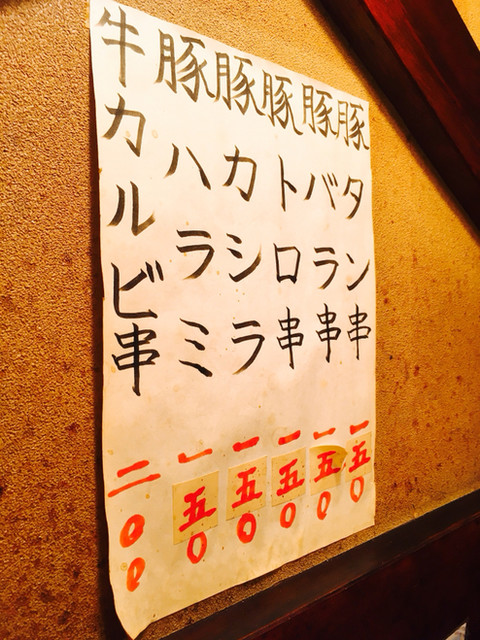 豚タン串 一五0
豚バラ串 一五0
豚トロ串 一五0
豚カシラ 一五0
豚ハラミ 一五0
牛カルビ串 二00